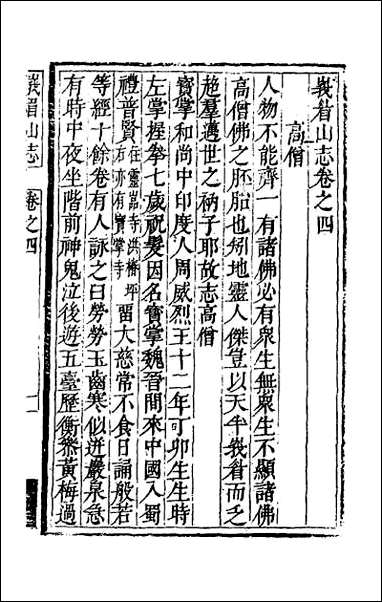 峩眉山志卷之四
高僧
人物不能齊一有諸佛必有衆生無衆生不顯諸佛
高僧佛之胚胎也矧地靈人傑豈以天半峩眉而乏
超羣邁世之衲子耶故志高僧
寳掌和尚中印度人周威烈王十二年丁卯生生時
左掌握拳七歲祝髮因名寳掌魏晉間來中國入蜀
禮普賢在靈嵓寺洪椿坪右亦有寳掌寺留大慈常不食日誦般若
等經十餘卷有人詠之曰勞勞玉齒寒似迸巖泉急
有時中夜坐階前神鬼泣後遊五臺歷衡黄梅過
峩眉山志
卷之四
一